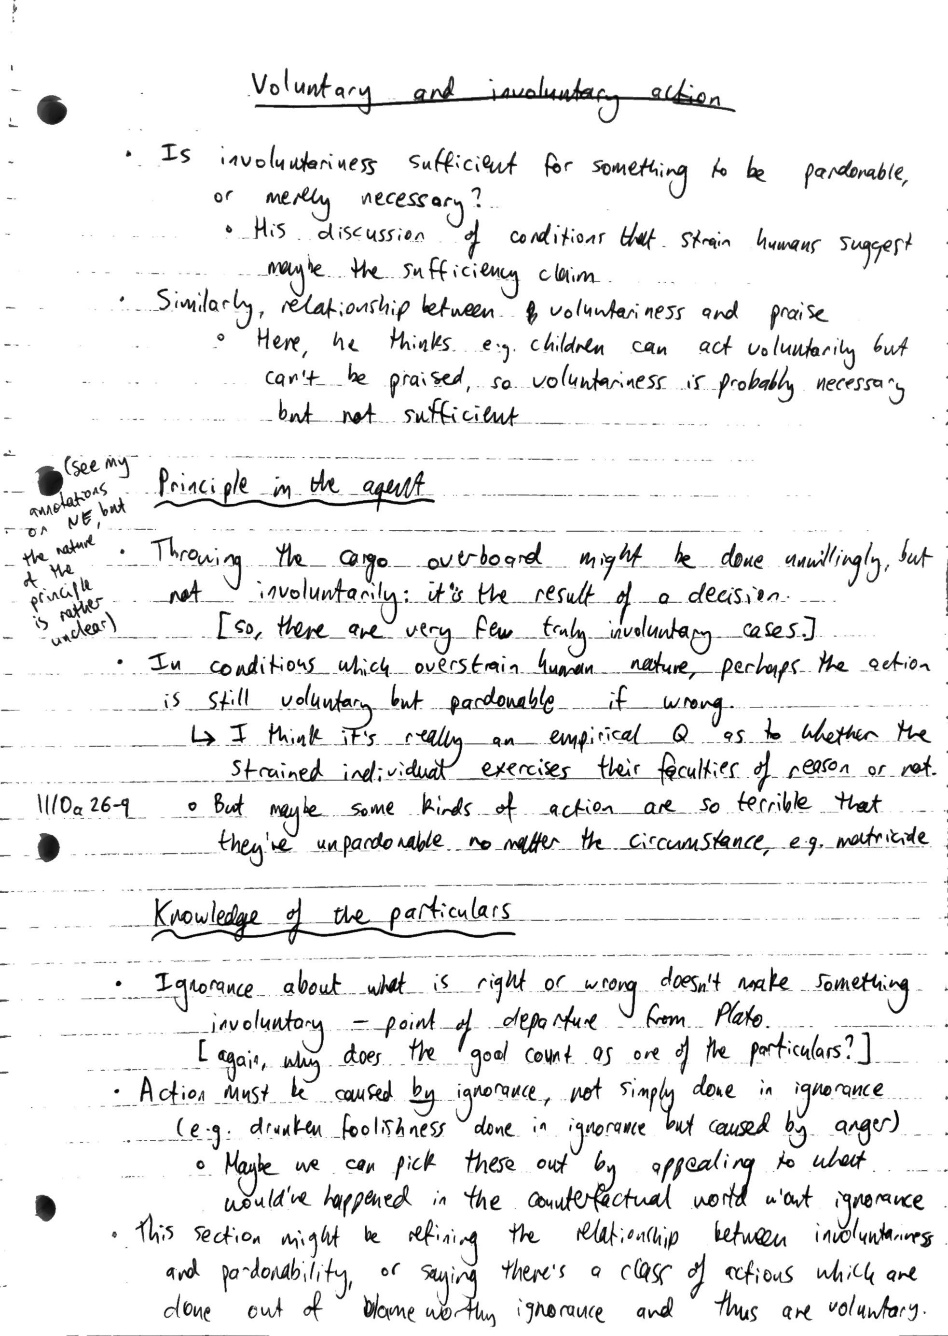 Voluntary and involuntary action
• Is involuntariness sufficient for something to be pardonable,
or merely necessary?
• His discussion of conditions that strain humans suggest
maybe the sufficiency claim.
• Similarly, relationship between voluntariness and praise
• Here, he thinks e.g. children can act voluntarily but
can't be praised, so voluntariness is probably necessary
but not sufficient
(see my
annotations
on NE, but
the nature
of the
principle
is rather
unclear)
Principle in the agent
• Throwing the cargo overboard might be done unwillingly, but
not involuntarily: it's the result of a decision.
[so, there are very few truly involuntary cases.]
• In conditions which overstrain human nature, perhaps the action
is still voluntary but pardonable if wrong.
↳ I think it's really an empirical Q as to whether the
strained individual exercises their faculties of reason or not.
1110a 26-9
• But maybe some kinds of action are so terrible that
they're unpardonable no matter the circumstance, e.g. matricide
Knowledge of the particulars
• Ignorance about what is right or wrong doesn't make something
involuntary – point of departure from Plato.
[again, why does the good count as one of the particulars?]
• Action must be caused by ignorance, not simply done in ignorance
(e.g. drunken foolishness done in ignorance but caused by anger)
• Maybe we can pick these out by appealing to what
would've happened in the counterfactual world w'out ignorance
• This section might be refining the relationship between involuntariness
and pardonability, or saying there's a class of actions which are
done out of blameworthy ignorance and thus are voluntary.